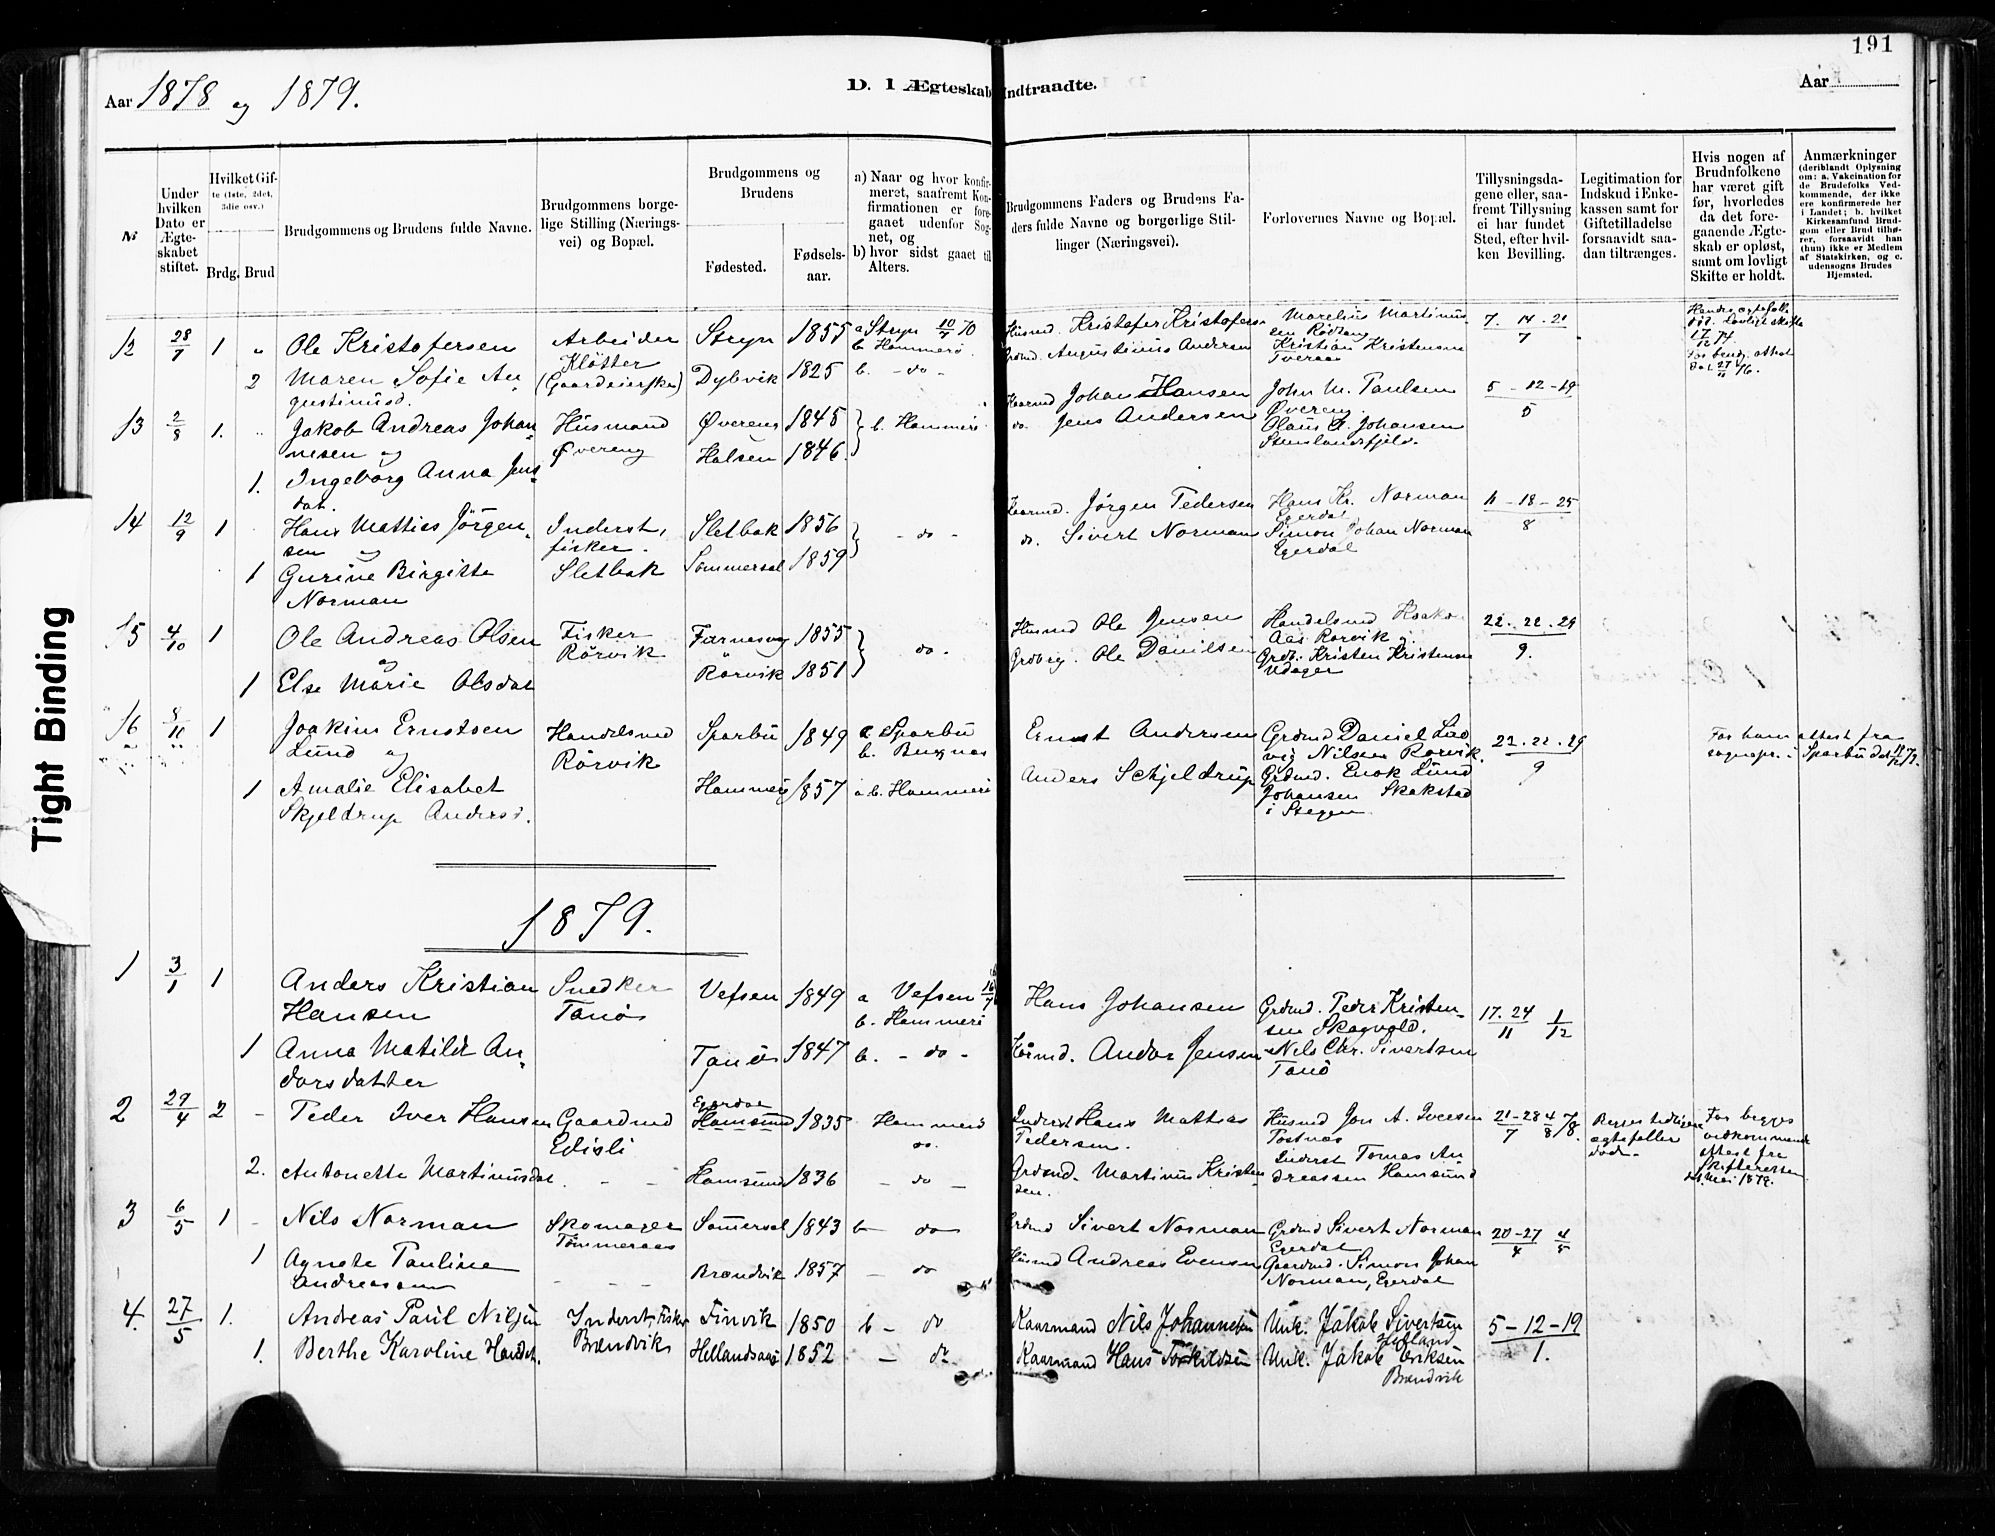 191
Aar 1878 og 1879.
D. I Ægteskab Indtraadte.
Aar
No
Under hvilken Dato er Ægteskabet stiftet.
Hvilket Gifte (1ste, 2det, 3die osv.)
Brdg.
Brud
Brudgommens og Brudens fulde Navne.
Brudgommens borgelige Stilling (Næringsvei) og Bopæl.
Brudgommens og Brudens
Fødested.
Fødselsaar.
a) Naar og hvor konfirmeret, saafremt Konfirmationen er foregaaet udenfor Sognet, og
b) hvor sidst gaaet til Alters.
Brudgommens Faders og Brudens Faders fulde Navne og borgerlige Stillinger (Næringsvei).
Forlovernes Navne og Bopæl.
Tillysningsdagene eller, saafremt Tillysning ei har fundet Sted, efter hvilken Bevilling.
Legitimation for Indskud i Enkekassen samt for Giftetilladelse forsaavidt saadan tiltrænges.
Hvis nogen af Brudnfolkene har været gift før, hvorledes da det foregaaende Ægteskab er opløst, samt om lovligt Skifte er holdt.
Anmærkninger (deriblandt Oplysning om: a. Vakcination for de Brudefolks Vedkommende, der ikke ere konfirmerede her i Landet; b. hvilket Kirkesamfund Brudgom eller Brud tilhører, forsaavidt han (hun) ikke er Medlem af Statskirken, og c. udensogns Brudes Hjemsted.
12 28/7 1 " Ole Kristofersen Arbeider Stryn 1855 a Stryn 10/7 70 Husmd. Kristofer Kristofersen Marelius Martinus- 7. 14. 21
b. Hammerø sen Rødtang 7
Kløtter Grdmd. Augustinus Andersen Kristian Kristensen
2 Maren Sofie Au- (Gaardeierske) Dybvik 1825 b. - do - Tveraa
gustinusd.
13 2/8 1. " Jakob Andreas Johan- Husmand Øvereng 1845 b. Hammerø Johan Hansen John M. Paulsen 5 - 12 - 19
nesen og Øvereng Halsen 1846. do. Jens Andersen Øvereng 5
1. Ingeborg Anna Jens- Olaus Johansen
dat. Stenslandsfjeld.
14 12/9 1 Hans Mattias Jörgen- Inderst, Sletbak 1856 - do - Jørgen Pedersen Hans Kr. Norman 11 - 18 - 25
sen og fisker. Egerdal 8
1 Gurine Birgitte Sletbak Sommersel 1859 do. Sivert Norman Simon Johan Norman
Norman Egerdal
15 4/10 1 Ole Andreas Olsen Fisker Furnesvg 1855 do. Husmd Ole Jensen Handelsmd Haako 22. 22. 29
og Rörvik Aas Rørvik 9.
1 Else Marie Olsdat Rørvik 1851 Ole Danilsen Grdb. Kristen Kristensen
16 8/10 1 Joakim Ernstsen Handelsmd Sparbu 1849 a Sparbu Ernst Andersen Grdmd Daniel Lud- 22. 22. 29 For ham attest fra
Lund og Rörvik b. Buxnæs vig Nilsen Rørvik. 9 sognepr. i Sparbu
1 Amalie Elisabet Hammerø 1857 a b. Hammerø Anders Schjeldrup Grdmd. Enok Lund
Skjeldrup Andersd. Johansen Skakstad
i Stegen
1879.
1 3/1 1 Anders Kristian Snedker Vefsen 1849 a Vefsen 16/7 Hans Johansen Grdmd. Peder Kristen- 17. 24 1
Hansen Tanö b. Hammerø sen Skagvold. 11 12
1 Anna Matilde An- Tanö 1847 b. - do - Andor Jensen Nils Chr. Sivertsen
dorsdatter Tanö
2 29/4 2 - Peder Iver Hansen Gaardmd Egerdal Hamsund 1835 Hammerø Inderst Hans Mattias Husmd Jon A. Iversen 21-28 4/8 78. Begges tidligere For begges
Edisli do. Pedersen. 7 ægtefeller vedkommende
2. Antonette Martinusdat. - - Hamsund 1836 - do - Grdmd. Martinus Kristen Inderst Tomas An- død. attest fra
sen. dreassen Hamsund Skifteretten
Mai 1878.
3 6/5 1 - Nils Norman Skomager Sommersel 1843 b - do Sivert Norman Grdmd Sivert Norman 20-27 4
Tömmeraas Egerdal 4 5
1 Agnete Pauline - - - Brændvik 1857 - do Husmd Andreas Evensen Gaardmd. Simon Johan
Andreassen Norman, Egerdal
4. 27/5 1. Andreas Paul Nilsen Inderst, Fisker Finvik 1850 b - do Kaarmand Nils Johannesen Unk. Jakob Sivertsen 5-12-19
Brændvik 1.
1. Berthe Karoline Hansdt. Hellandsaas 1852 - do Kaarmand Hans Torkildsen Unk. Jakob Eriksen
Brændvik
Tight Binding